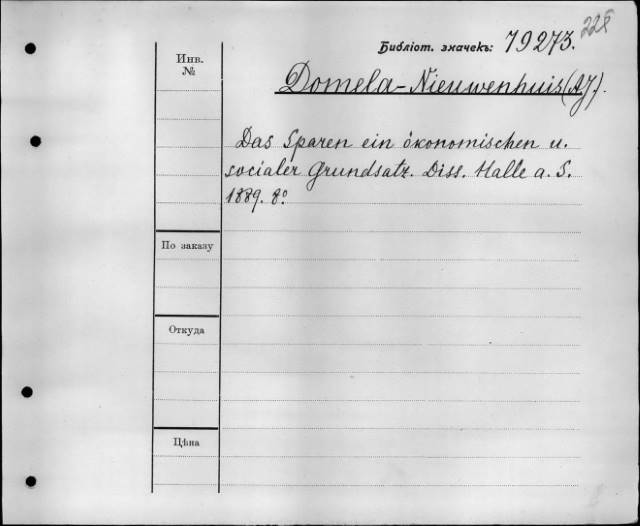 Библіот. значекъ: 79273.
Инв.
№
Domela-Nieuwenhuis (A.J.).
Das Sparen ein ökonomischen u.
socialer Grundsatz. Diss. Halle a. S.
1889. 8º
По заказу
Откуда
Цѣна